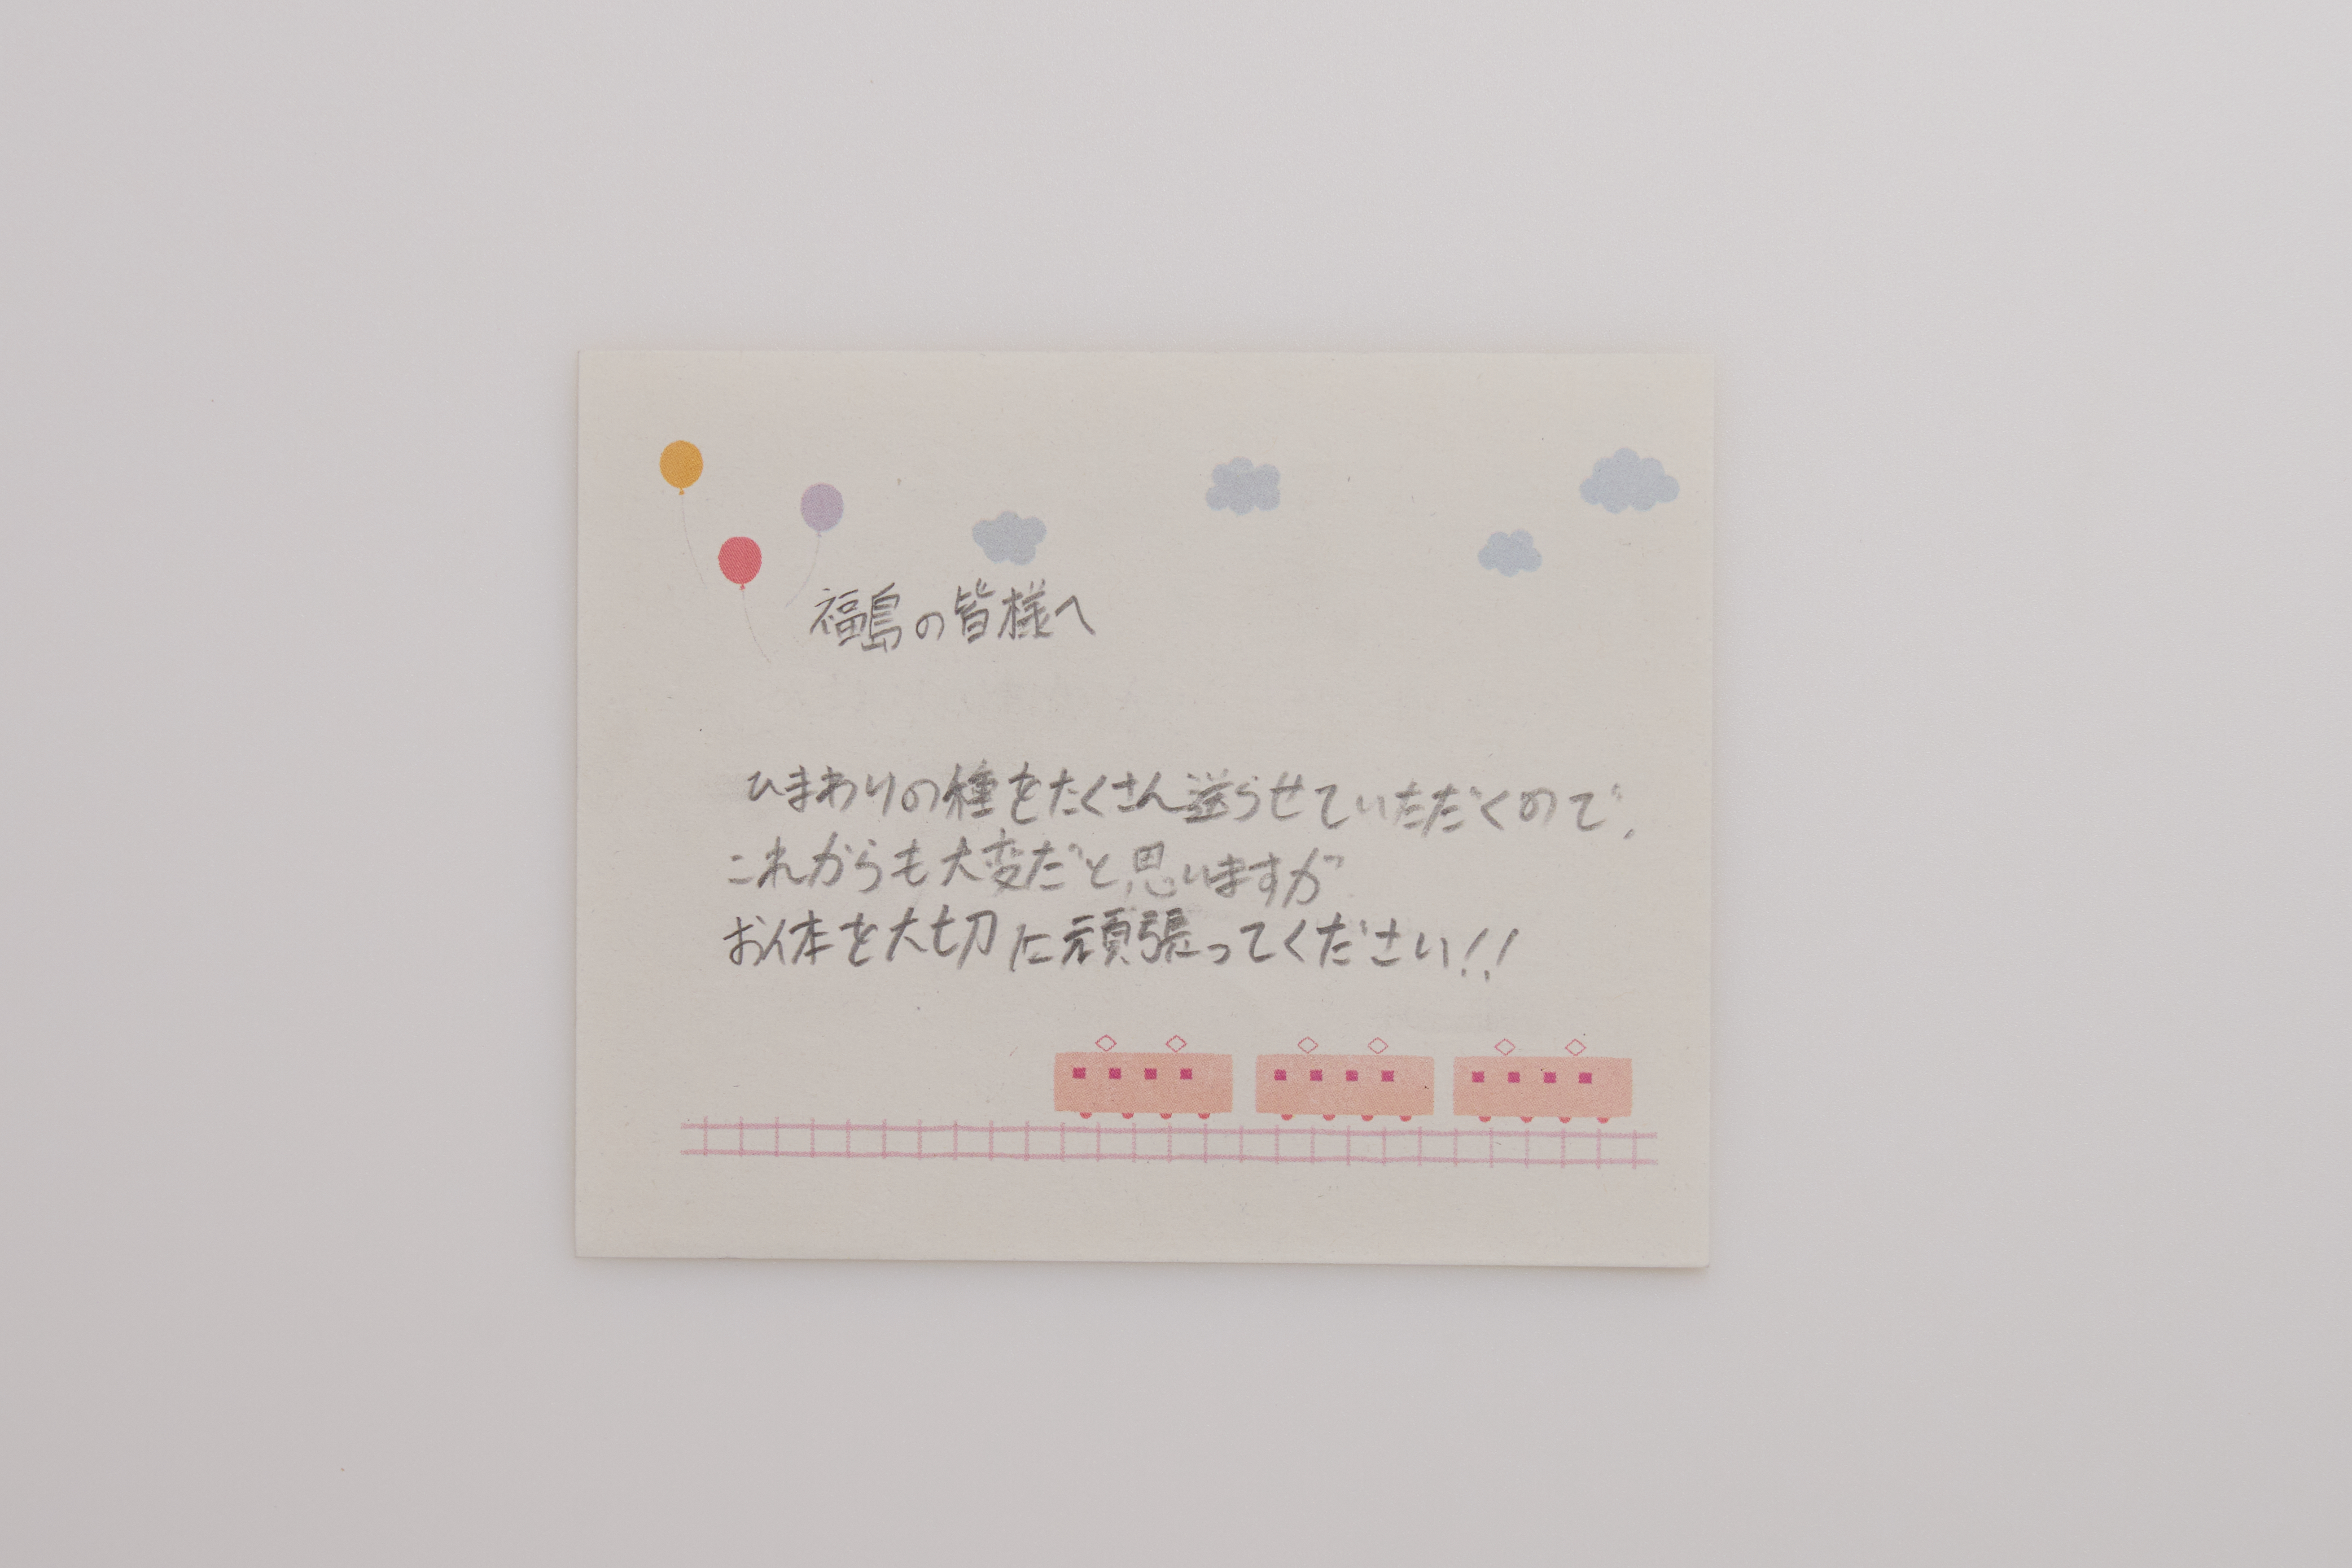 福島の皆様へ
ひまわりの種をたくさん送らせていただくので、
これからも大変だと思いますが
お体を大切に頑張ってください!!